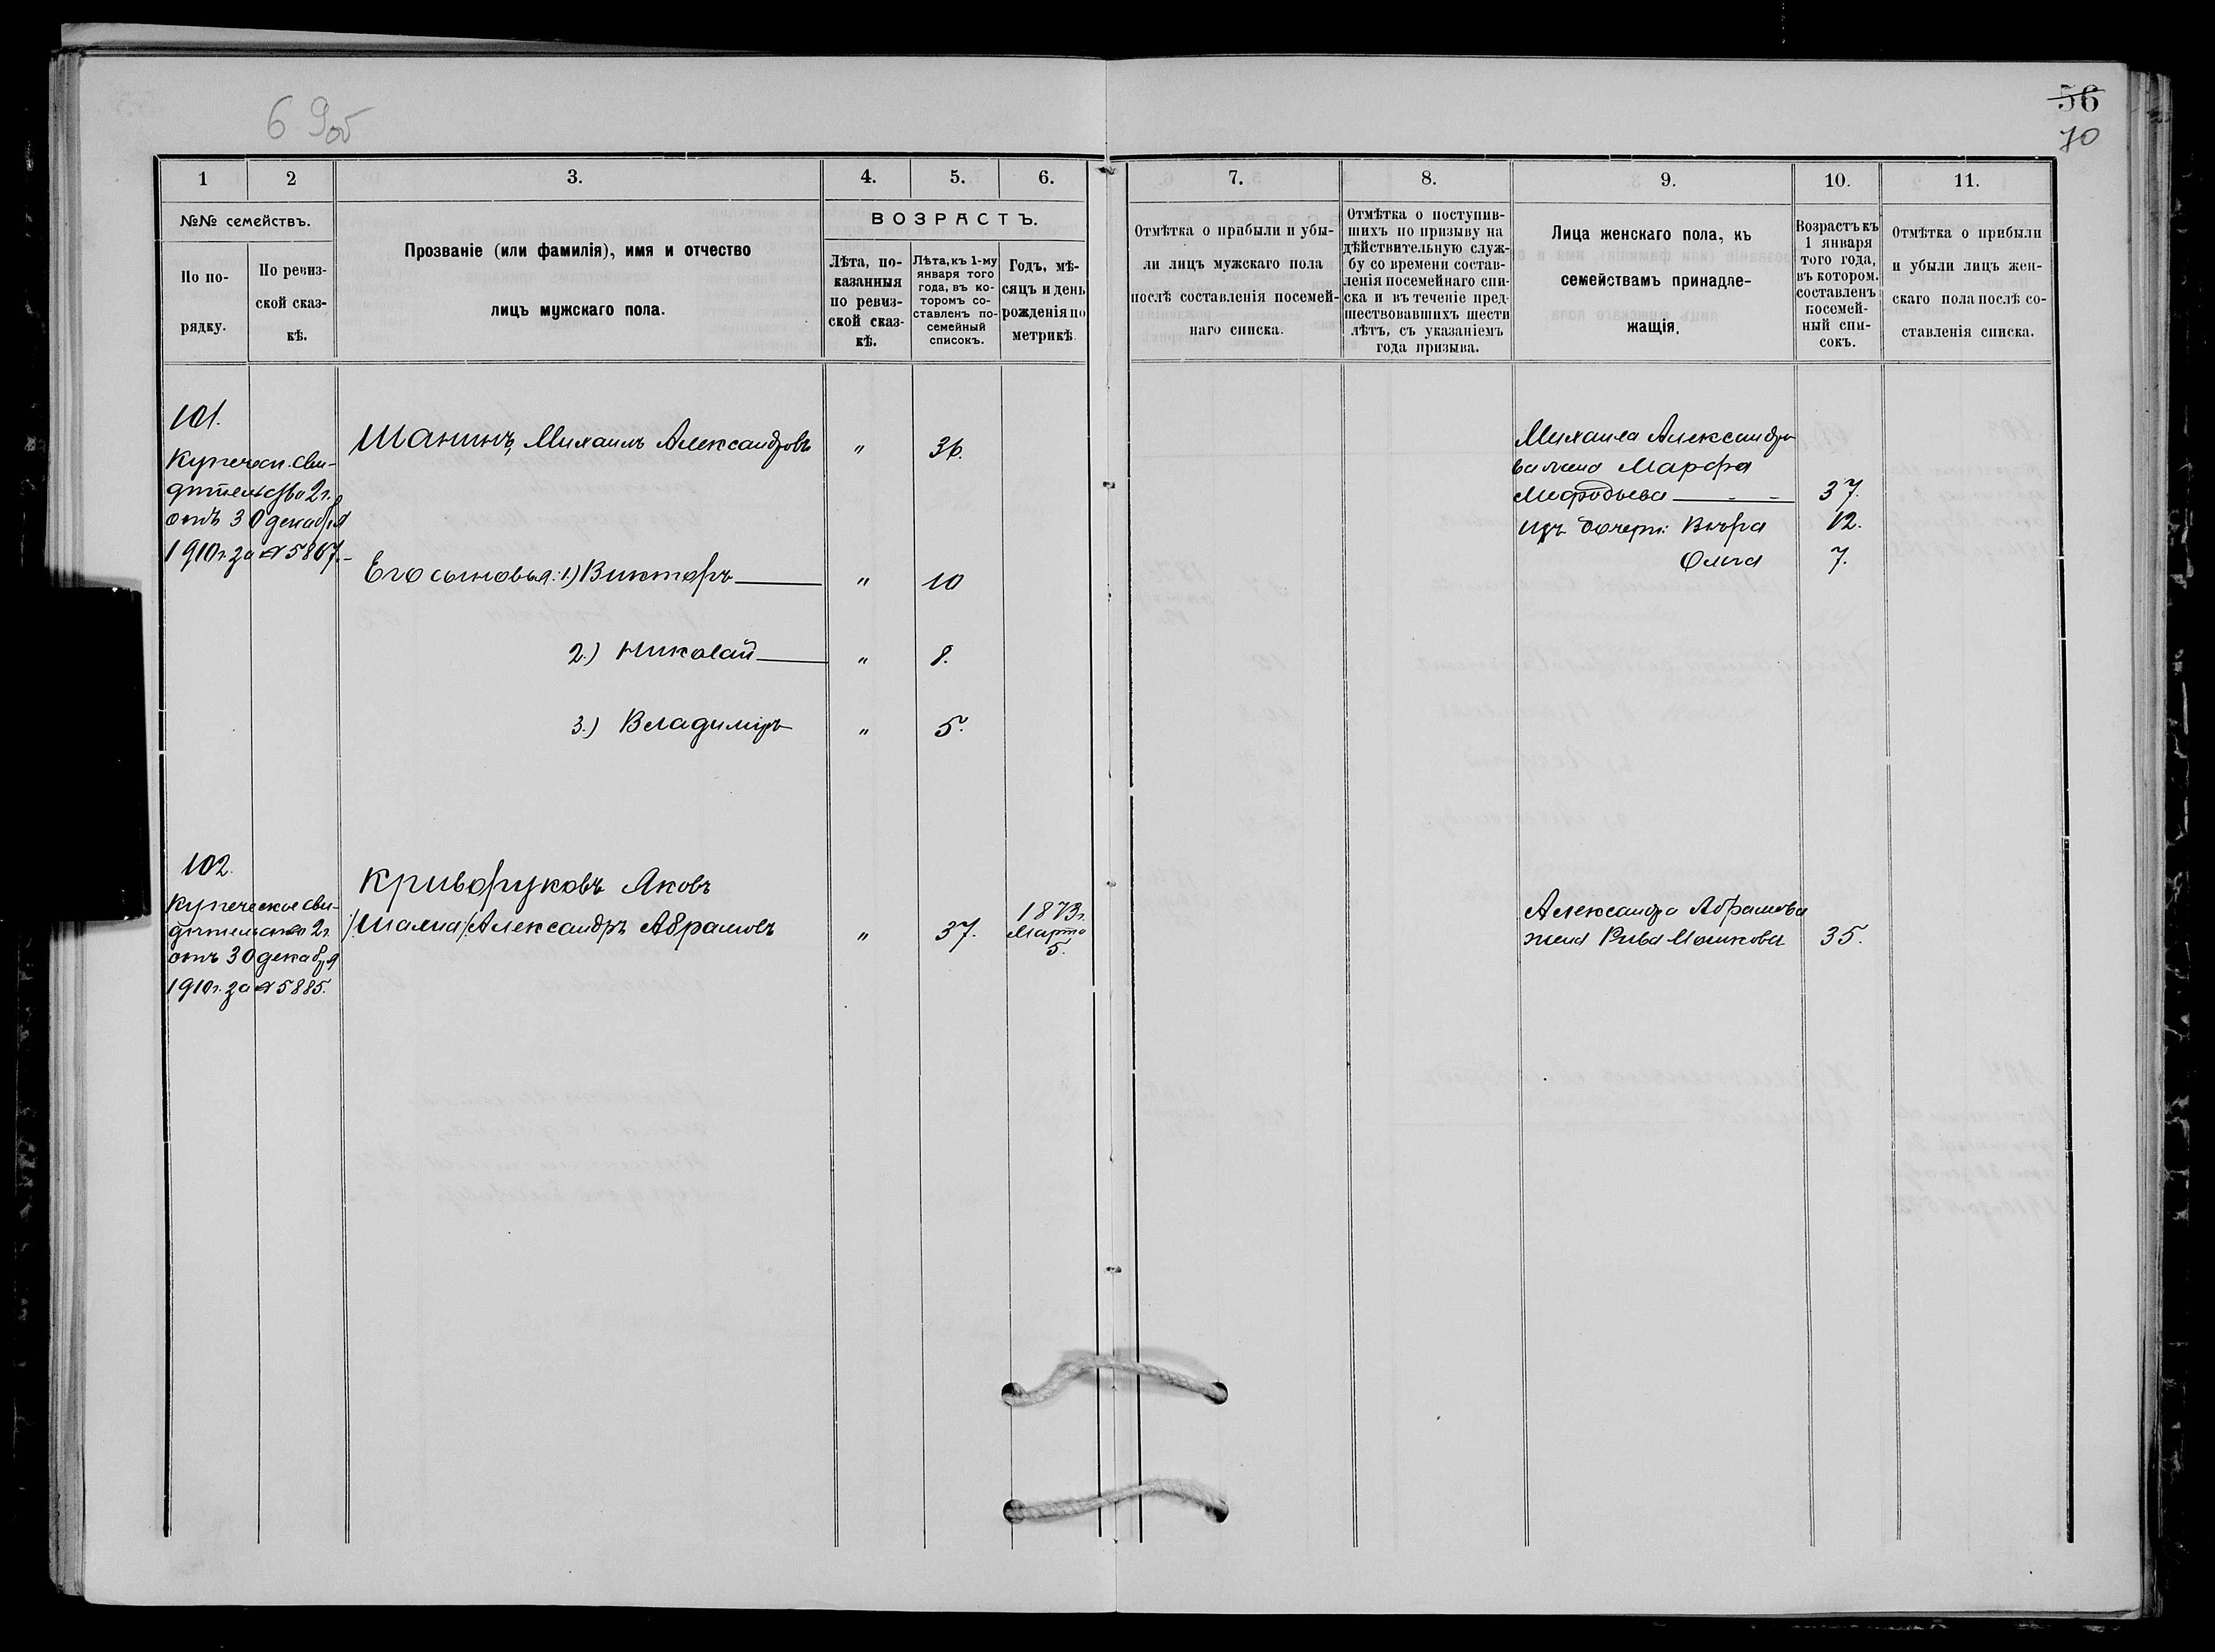 69об
56
70
1
2
3.
4.
5.
6.
№№ семействъ.
По по-
рядку.
По ревиз-
ской сказ-
кѣ.
Прозваніе (или фамилія), имя и отчество
лицъ мужскаго пола.
ВОЗРАСТЪ.
Лѣта, по-
казанныя
по ревиз-
ской сказ-
кѣ.
Лѣта, къ 1-му
января того
года, въ ко-
торомъ со-
ставленъ по-
семейный
списокъ.
Годъ, мѣ-
сяцъ и день
рожденія по
метрикѣ.
7.
8.
9.
10.
11.
Отмѣтка о прибыли и убы-
ли лицъ мужскаго пола
послѣ составленія посемей-
наго списка.
Отмѣтка о поступив-
шихъ по призыву на
дѣйствительную служ-
бу со времени состав-
ленія посемейнаго спи-
ска и въ теченіе пред-
шествовавшихъ шести
лѣтъ, съ указаніемъ
года призыва.
Лица женскаго пола, къ
семействамъ принадле-
жащія.
Возрастъ къ
1 января
того года,
въ котором.
составленъ
посемей-
ный спи-
сокъ.
Отмѣтка о прибыли
и убыли лицъ жен-
скаго пола послѣ со-
ставленія списка.
101.
Купеческ. сви-
дѣтельство 2 г.
отъ 30 декабря
1910 г. за № 5867.
Шанинъ, Михаилъ Александровъ " 36.
Его сыновья: 1.) Викторъ " 10
2.) Николай " 8.
3.) Владиміръ " 5.
Михаила Александро-
ва жена Марфа
Мефодьева 37.
ихъ дочери: Вѣра 12.
Ольга 7.
102.
Купеческое сви-
дѣтельство 2 г.
отъ 30 декабря
1910 г. за № 5885.
Криворуковъ Яковъ
/:Шалма:/ Александръ Абрамовъ " 37.
1873 г.
Марта
5.
Александра Абрамова
жена Рива Мошкова 35.